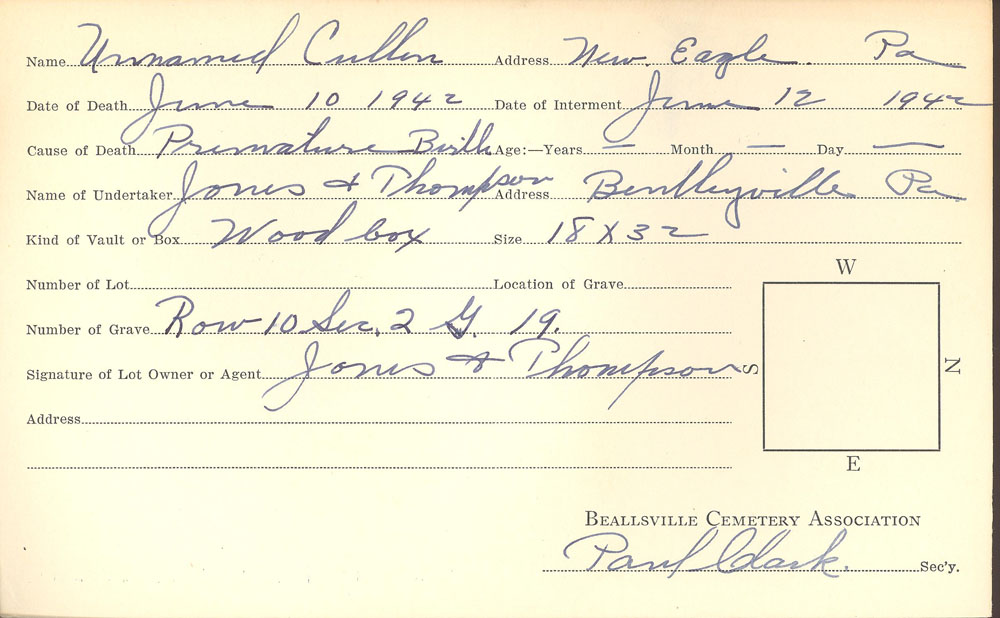 Name Unnamed Cullen Address New Eagle. Pa
Date of Death June 10 1942 Date of Interment June 12 1942
Cause of Death Premature Birth Age:—Years — Month — Day —
Name of Undertaker Jones & Thompson Address Bentleyville Pa
Kind of Vault or Box Wood box Size 18 X 32
Number of Lot Location of Grave
W
Number of Grave Row 10 Sec. 2 G. 19.
Signature of Lot Owner or Agent Jones & Thompson
S N
Address
E
BEALLSVILLE CEMETERY ASSOCIATION
Paul Clark. Sec'y.